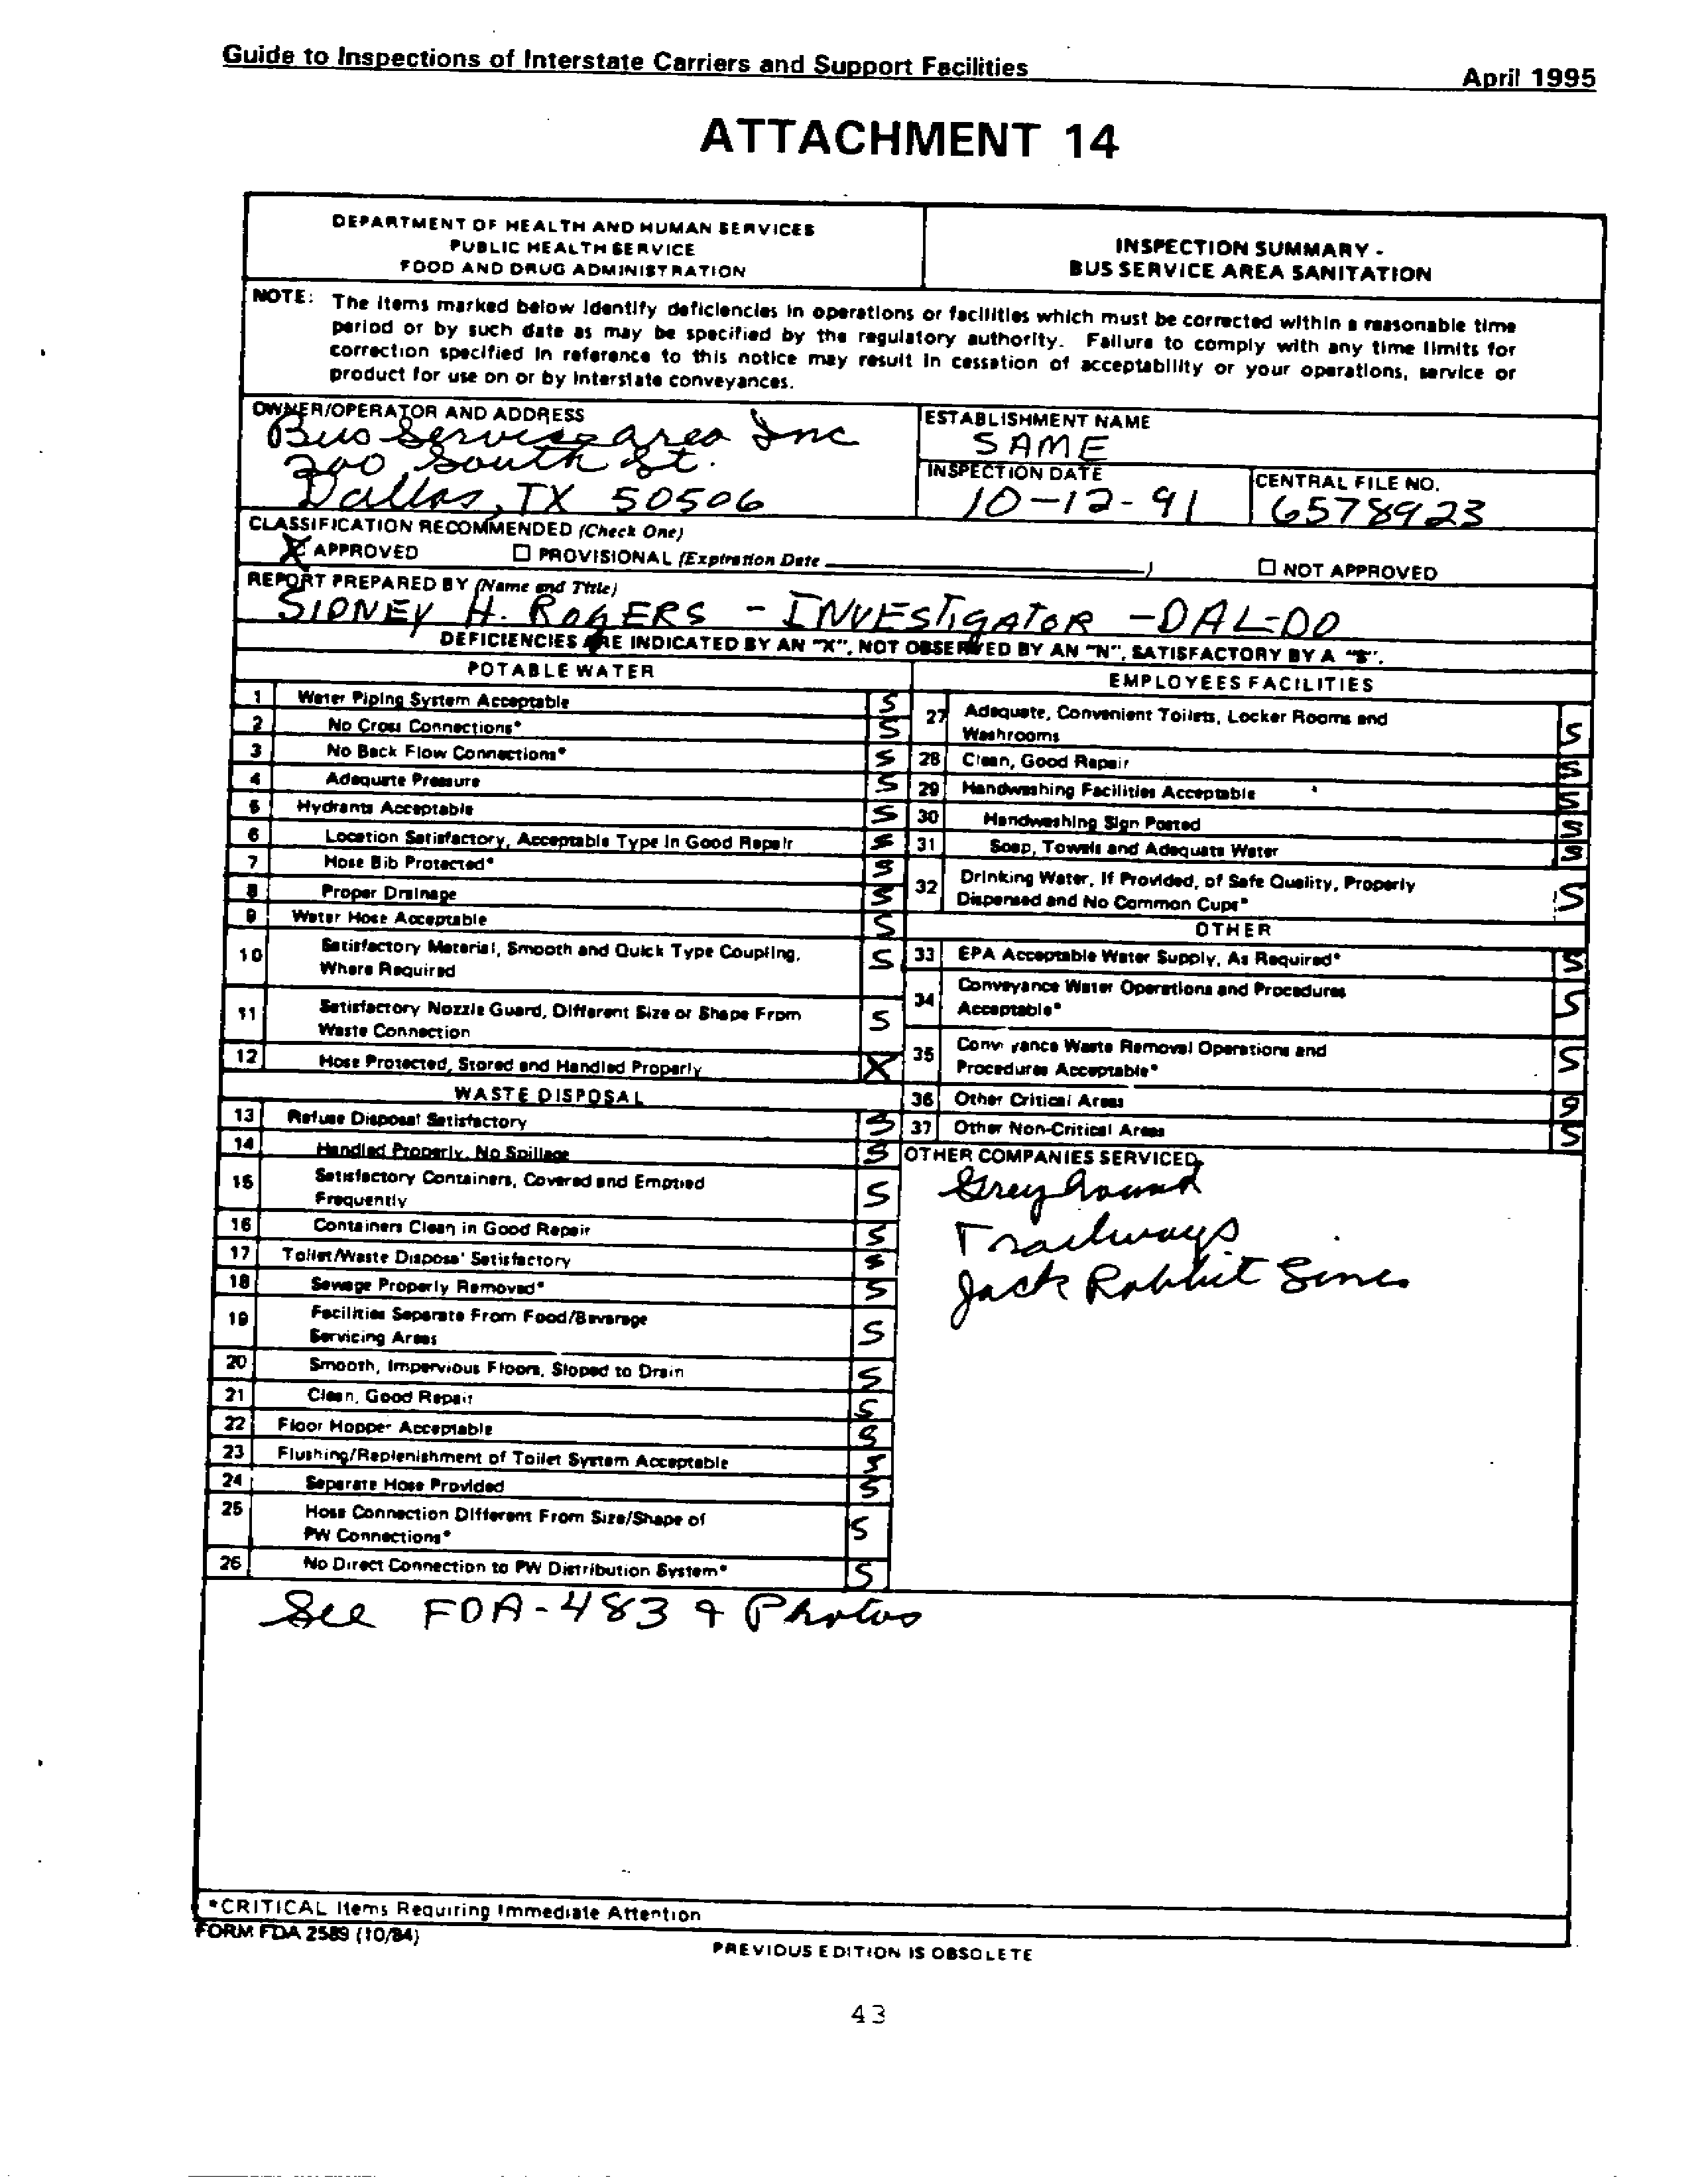 Guide to Inspections of Interstate Carriers and Support Facilities
April 1995
ATTACHMENT 14
DEPARTMENT OF HEALTH AND HUMAN SERVICES
PUBLIC HEALTH SERVICE
FOOD AND DRUG ADMINISTRATION
INSPECTION SUMMARY -
BUS SERVICE AREA SANITATION
NOTE: The items marked below identify deficiencies in operations or facilities which must be corrected within a reasonable time
period or by such date as may be specified by the regulatory authority. Failure to comply with any time limits for
correction specified in reference to this notice may result in cessation of acceptability or your operations, service or
product for use on or by interstate conveyances.
OWNER/OPERATOR AND ADDRESS
Bus Service area Inc
200 South St.
Dallas, TX 50506
ESTABLISHMENT NAME
SAME
INSPECTION DATE
10-12-91
CENTRAL FILE NO.
6578923
CLASSIFICATION RECOMMENDED (Check One)
X APPROVED
☐ PROVISIONAL (Expiration Date )
☐ NOT APPROVED
REPORT PREPARED BY (Name and Title)
SIDNEY H. ROGERS - INVESTIGATOR - DAL-DO
DEFICIENCIES ARE INDICATED BY AN "X", NOT OBSERVED BY AN "N", SATISFACTORY BY A "S".
POTABLE WATER
1 Water Piping System Acceptable S
2 No Cross Connections* S
3 No Back Flow Connections* S
4 Adequate Pressure S
5 Hydrants Acceptable S
6 Location Satisfactory, Acceptable Type In Good Repair S
7 Hose Bib Protected* S
8 Proper Drainage S
9 Water Hose Acceptable S
10 Satisfactory Material, Smooth and Quick Type Coupling,
Where Required S
11 Satisfactory Nozzle Guard, Different Size or Shape From
Waste Connection S
12 Hose Protected, Stored and Handled Properly X
WASTE DISPOSAL
13 Refuse Disposal Satisfactory S
14 Handled Properly, No Spillage S
15 Satisfactory Containers, Covered and Emptied
Frequently S
16 Containers Clean in Good Repair S
17 Toilet/Waste Disposa' Satisfactory S
18 Sewage Properly Removed* S
19 Facilities Separate From Food/Beverage
Servicing Areas S
20 Smooth, Impervious Floors, Sloped to Drain S
21 Clean, Good Repair S
22 Floor Hopper Acceptable S
23 Flushing/Replenishment of Toilet System Acceptable S
24 Separate Hose Provided S
25 Hose Connection Different From Size/Shape of
PW Connections* S
26 No Direct Connection to PW Distribution System* S
EMPLOYEES FACILITIES
27 Adequate, Convenient Toilets, Locker Rooms and
Washrooms S
28 Clean, Good Repair S
29 Handwashing Facilities Acceptable S
30 Handwashing Sign Posted S
31 Soap, Towels and Adequate Water S
32 Drinking Water, If Provided, of Safe Quality, Properly
Dispensed and No Common Cups* S
OTHER
33 EPA Acceptable Water Supply, As Required* S
34 Conveyance Water Operations and Procedures
Acceptable* S
35 Conveyance Waste Removal Operations and
Procedures Acceptable* S
36 Other Critical Areas S
37 Other Non-Critical Areas S
OTHER COMPANIES SERVICED
Greyhound
Trailways
Jack Rabbit Lines
See FDA-483 & Photos
*CRITICAL Items Requiring Immediate Attention
FORM FDA 2589 (10/84)
PREVIOUS EDITION IS OBSOLETE
43